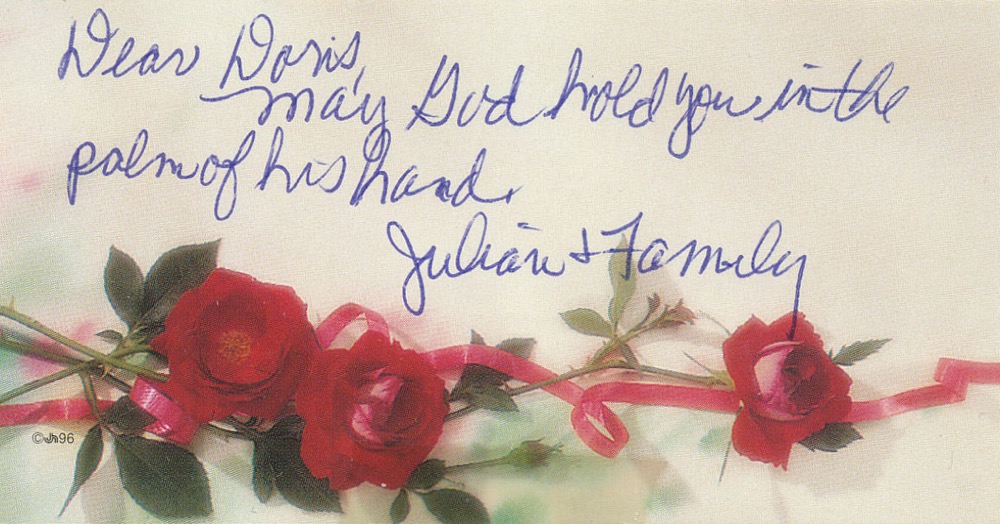 Dear Doris,
May God hold you in the
palm of his hand.
Julian & Family
©Jh96